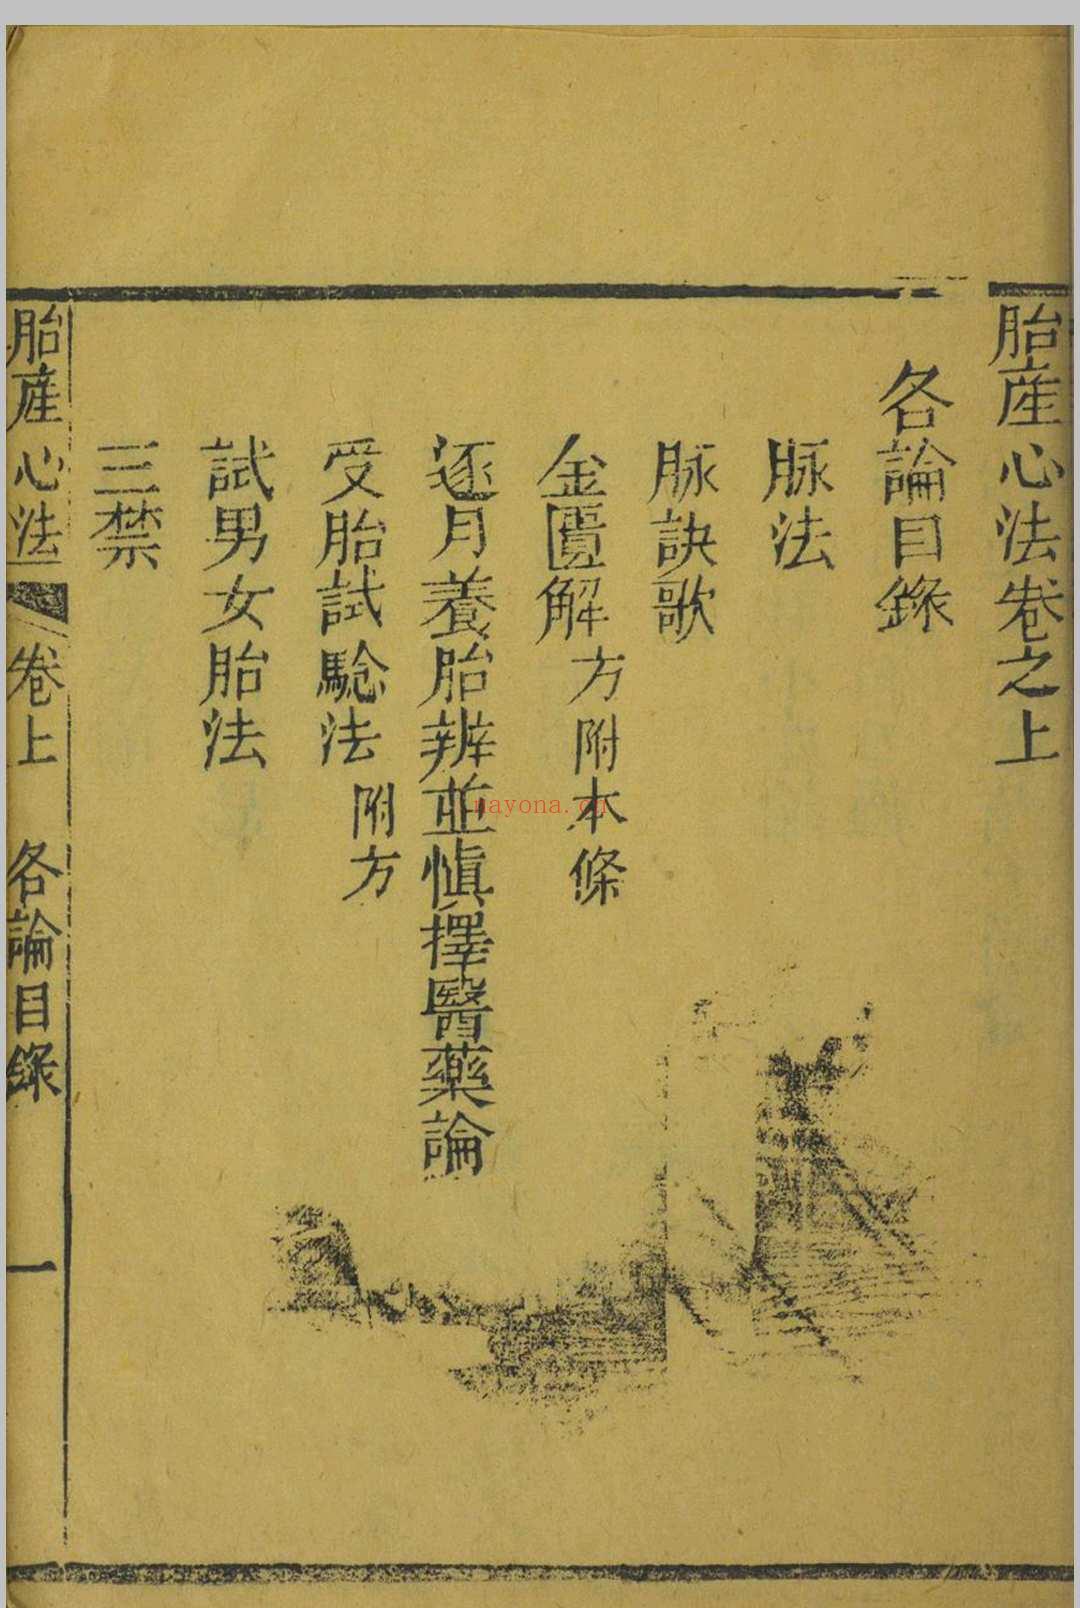 胎產心法卷之上
各論目錄
脉法
脉訣歌
金匱解方附本條
逐月養胎辨並愼擇醫藥論
受胎試騐法附方
試男女胎法
三禁
胎產心法 卷上 各論目錄 一